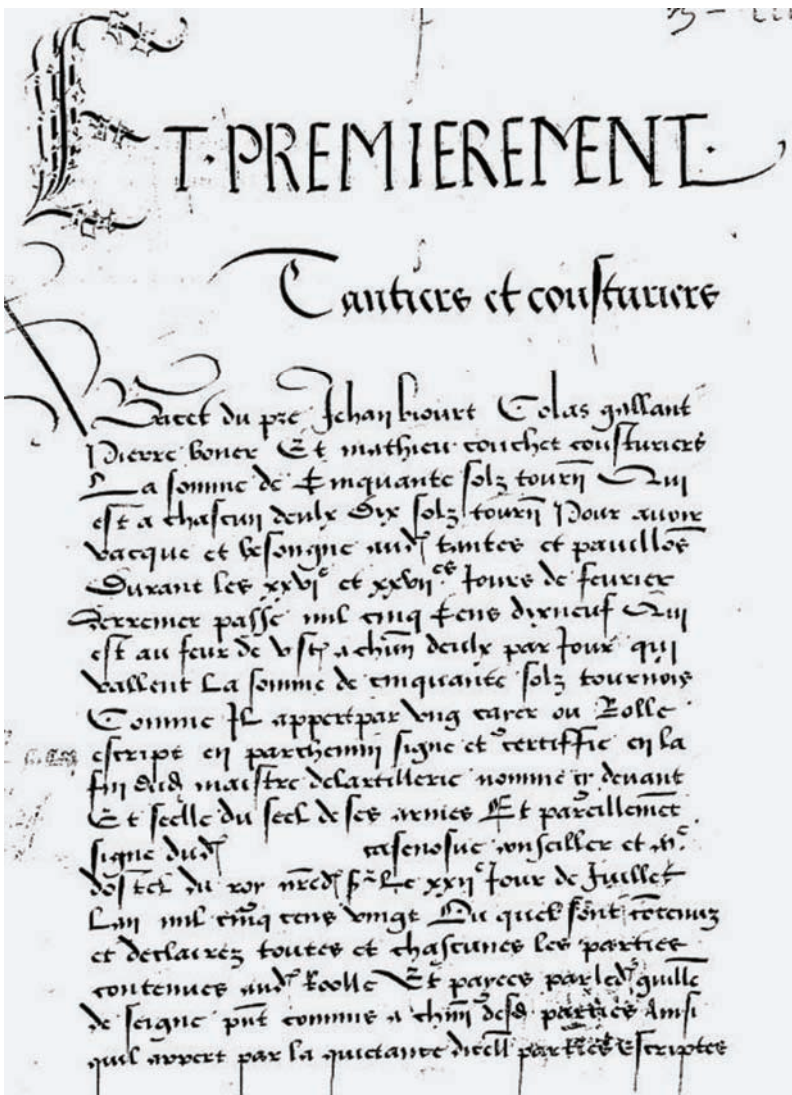 ET · PREMIEREMENT ·
Tantiers et cousturiers
du pre Jehan biourt Colas gallant
Pierre boner Et mathieu couchet cousturiers
La somme de Cinquante solz tourn Qui
est a chascun deulx Dix solz tourn Pour avoir
vacque et besongne aud tantes et pavillos
Durant les xxvi e et xxvii es Jours de fevrier
derrenier passe mil cinq Cens dixneuf Qui
est au feur de v st a chun deulx par Jour qui
vallent La somme de cinquante solz tournois
Comme Il appert par ung cayer ou Rolle
escript en parchemin signe et certiffie en la
fin dud maistre delartillerie nomme cy devant
Et seelle du seel de ses armes Et pareillemet
signe dud casenosve conseiller et m e
dostel du roy nred s r Le xxii e Jour de Juillet
Lan mil cinq cens vingt Ou quel sont cotenuz
et declairez toutes et chascunes les parties
contenues aud Roolle Et payees par led guille
de seigne pnt commis a chun desd parties Ainsi
quil appert par la quictance dicell parties Escriptes